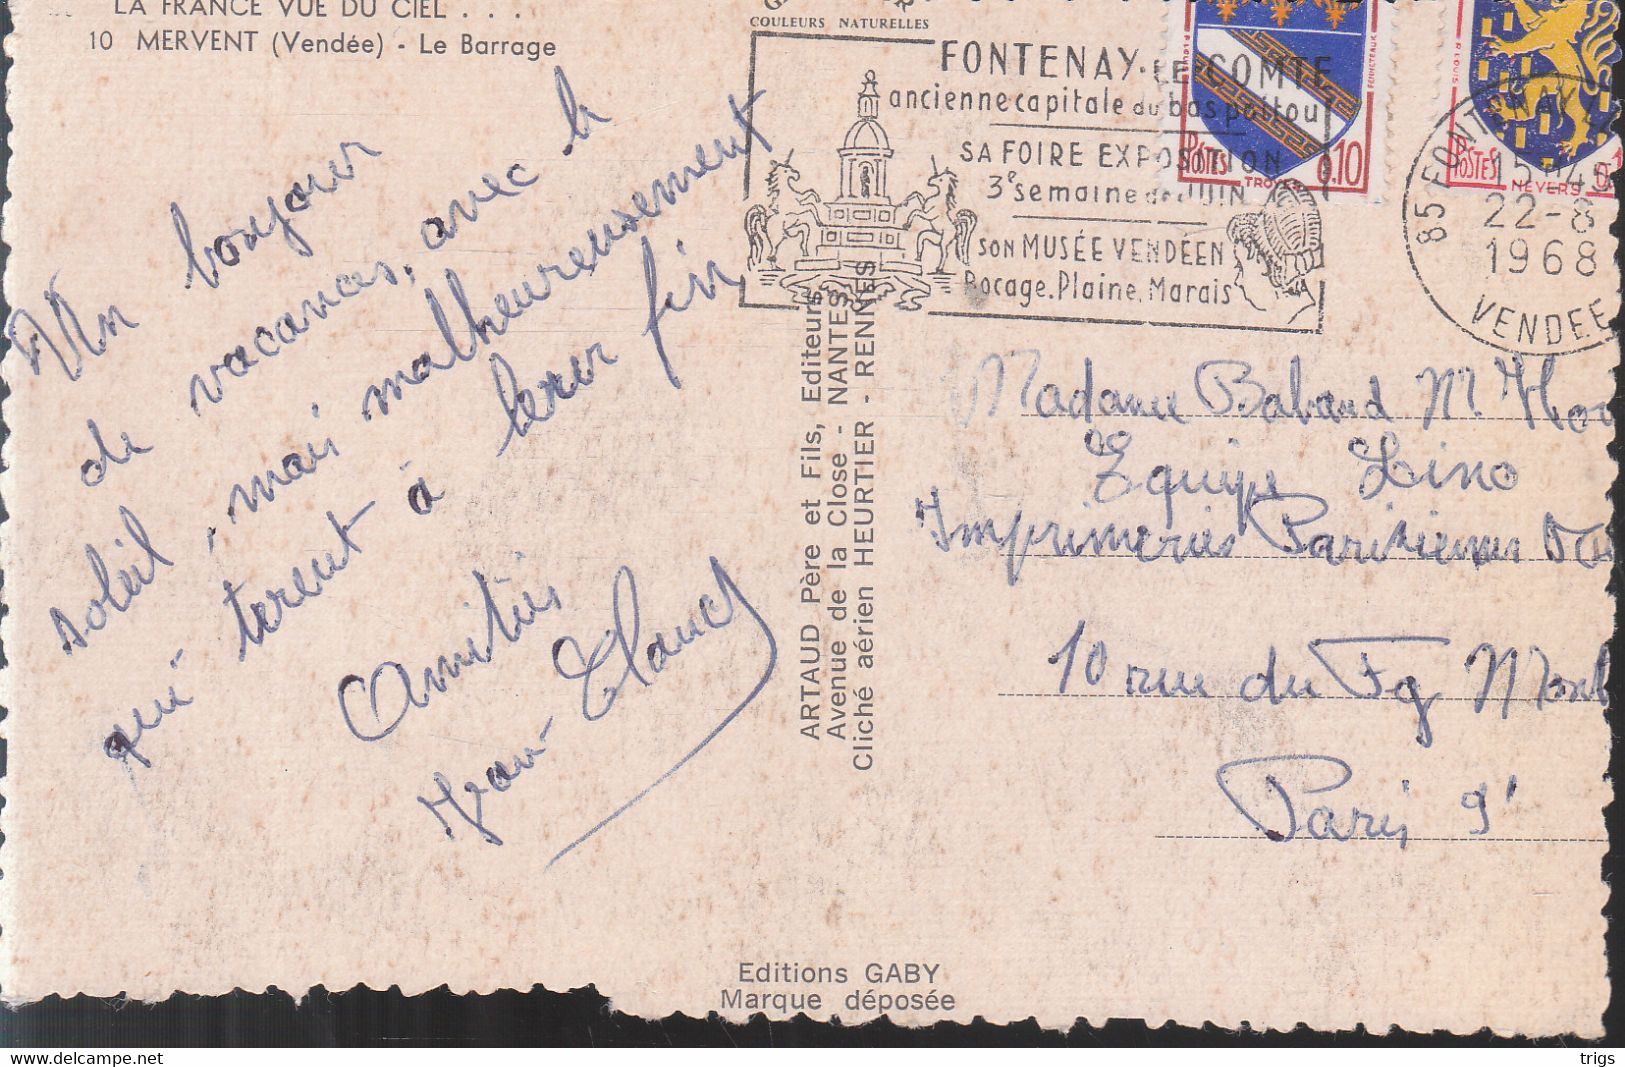 LA FRANCE VUE DU CIEL . . .
10 MERVENT (Vendée) - Le Barrage
COULEURS NATURELLES
Un bonjour
de vacances, avec le
soleil, mais malheureusement
qui tirent à leur fin
Amitiés
Jean-Claude
ARTAUD Père et Fils, Editeurs
Avenue de la Close - NANTES
Cliché aérien HEURTIER - RENNES
Editions GABY
Marque déposée
FONTENAY-LE-COMTE
ancienne capitale du bas poitou
SA FOIRE EXPOSITION
3e semaine de JUIN
SON MUSÉE VENDÉEN
Bocage. Plaine. Marais
POSTES 0,10
TROYES
POSTES
NEVERS
85 FONTENAY
15 H45
22-8
1968
VENDEE
Madame Baband M
Equipe Lino
Imprimeries Parisiennes
10 rue du Fg
Paris 9e
trigs